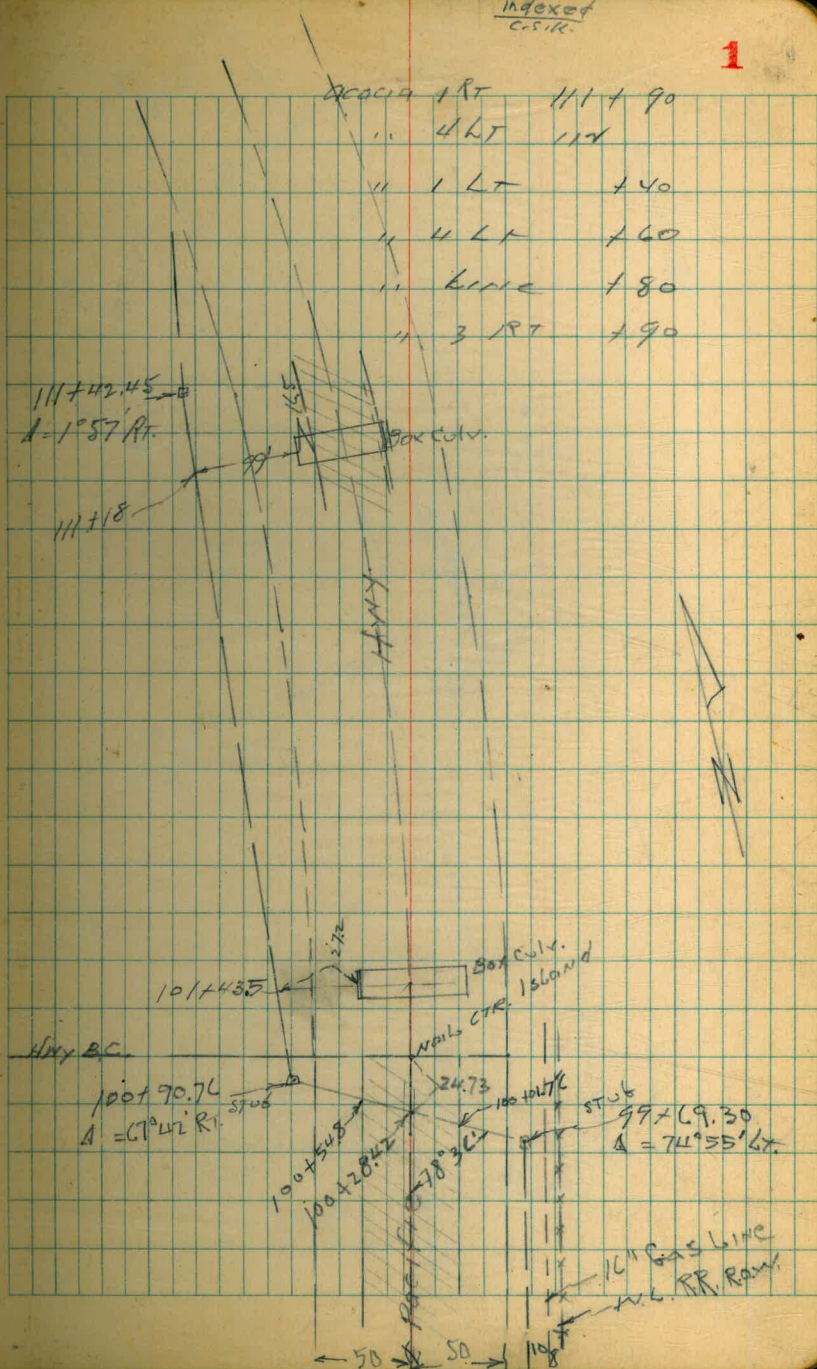 Indexed
C.S.K.
1
Acacia 1 RT 111 + 90
" 4 LT 112
" 1 LT + 40
" 4 LT + 60
" Line + 80
" 3 RT + 90
111+42.45
Δ = 1°57' RT.
16.5
Box Culv.
99'
111+18
HWY.
N
27.2
Box Culv.
101+43.5
Nail CTR. Island
HWY B.C.
24.73
100+90.76
STUB
Δ = 67°42' RT.
STUB
99+69.30
Δ = 74°55' LT.
100+54.8
100+28.42
78°36'
Pacific
16" Gas Line
RR. R.O.W.
50
50
10/8